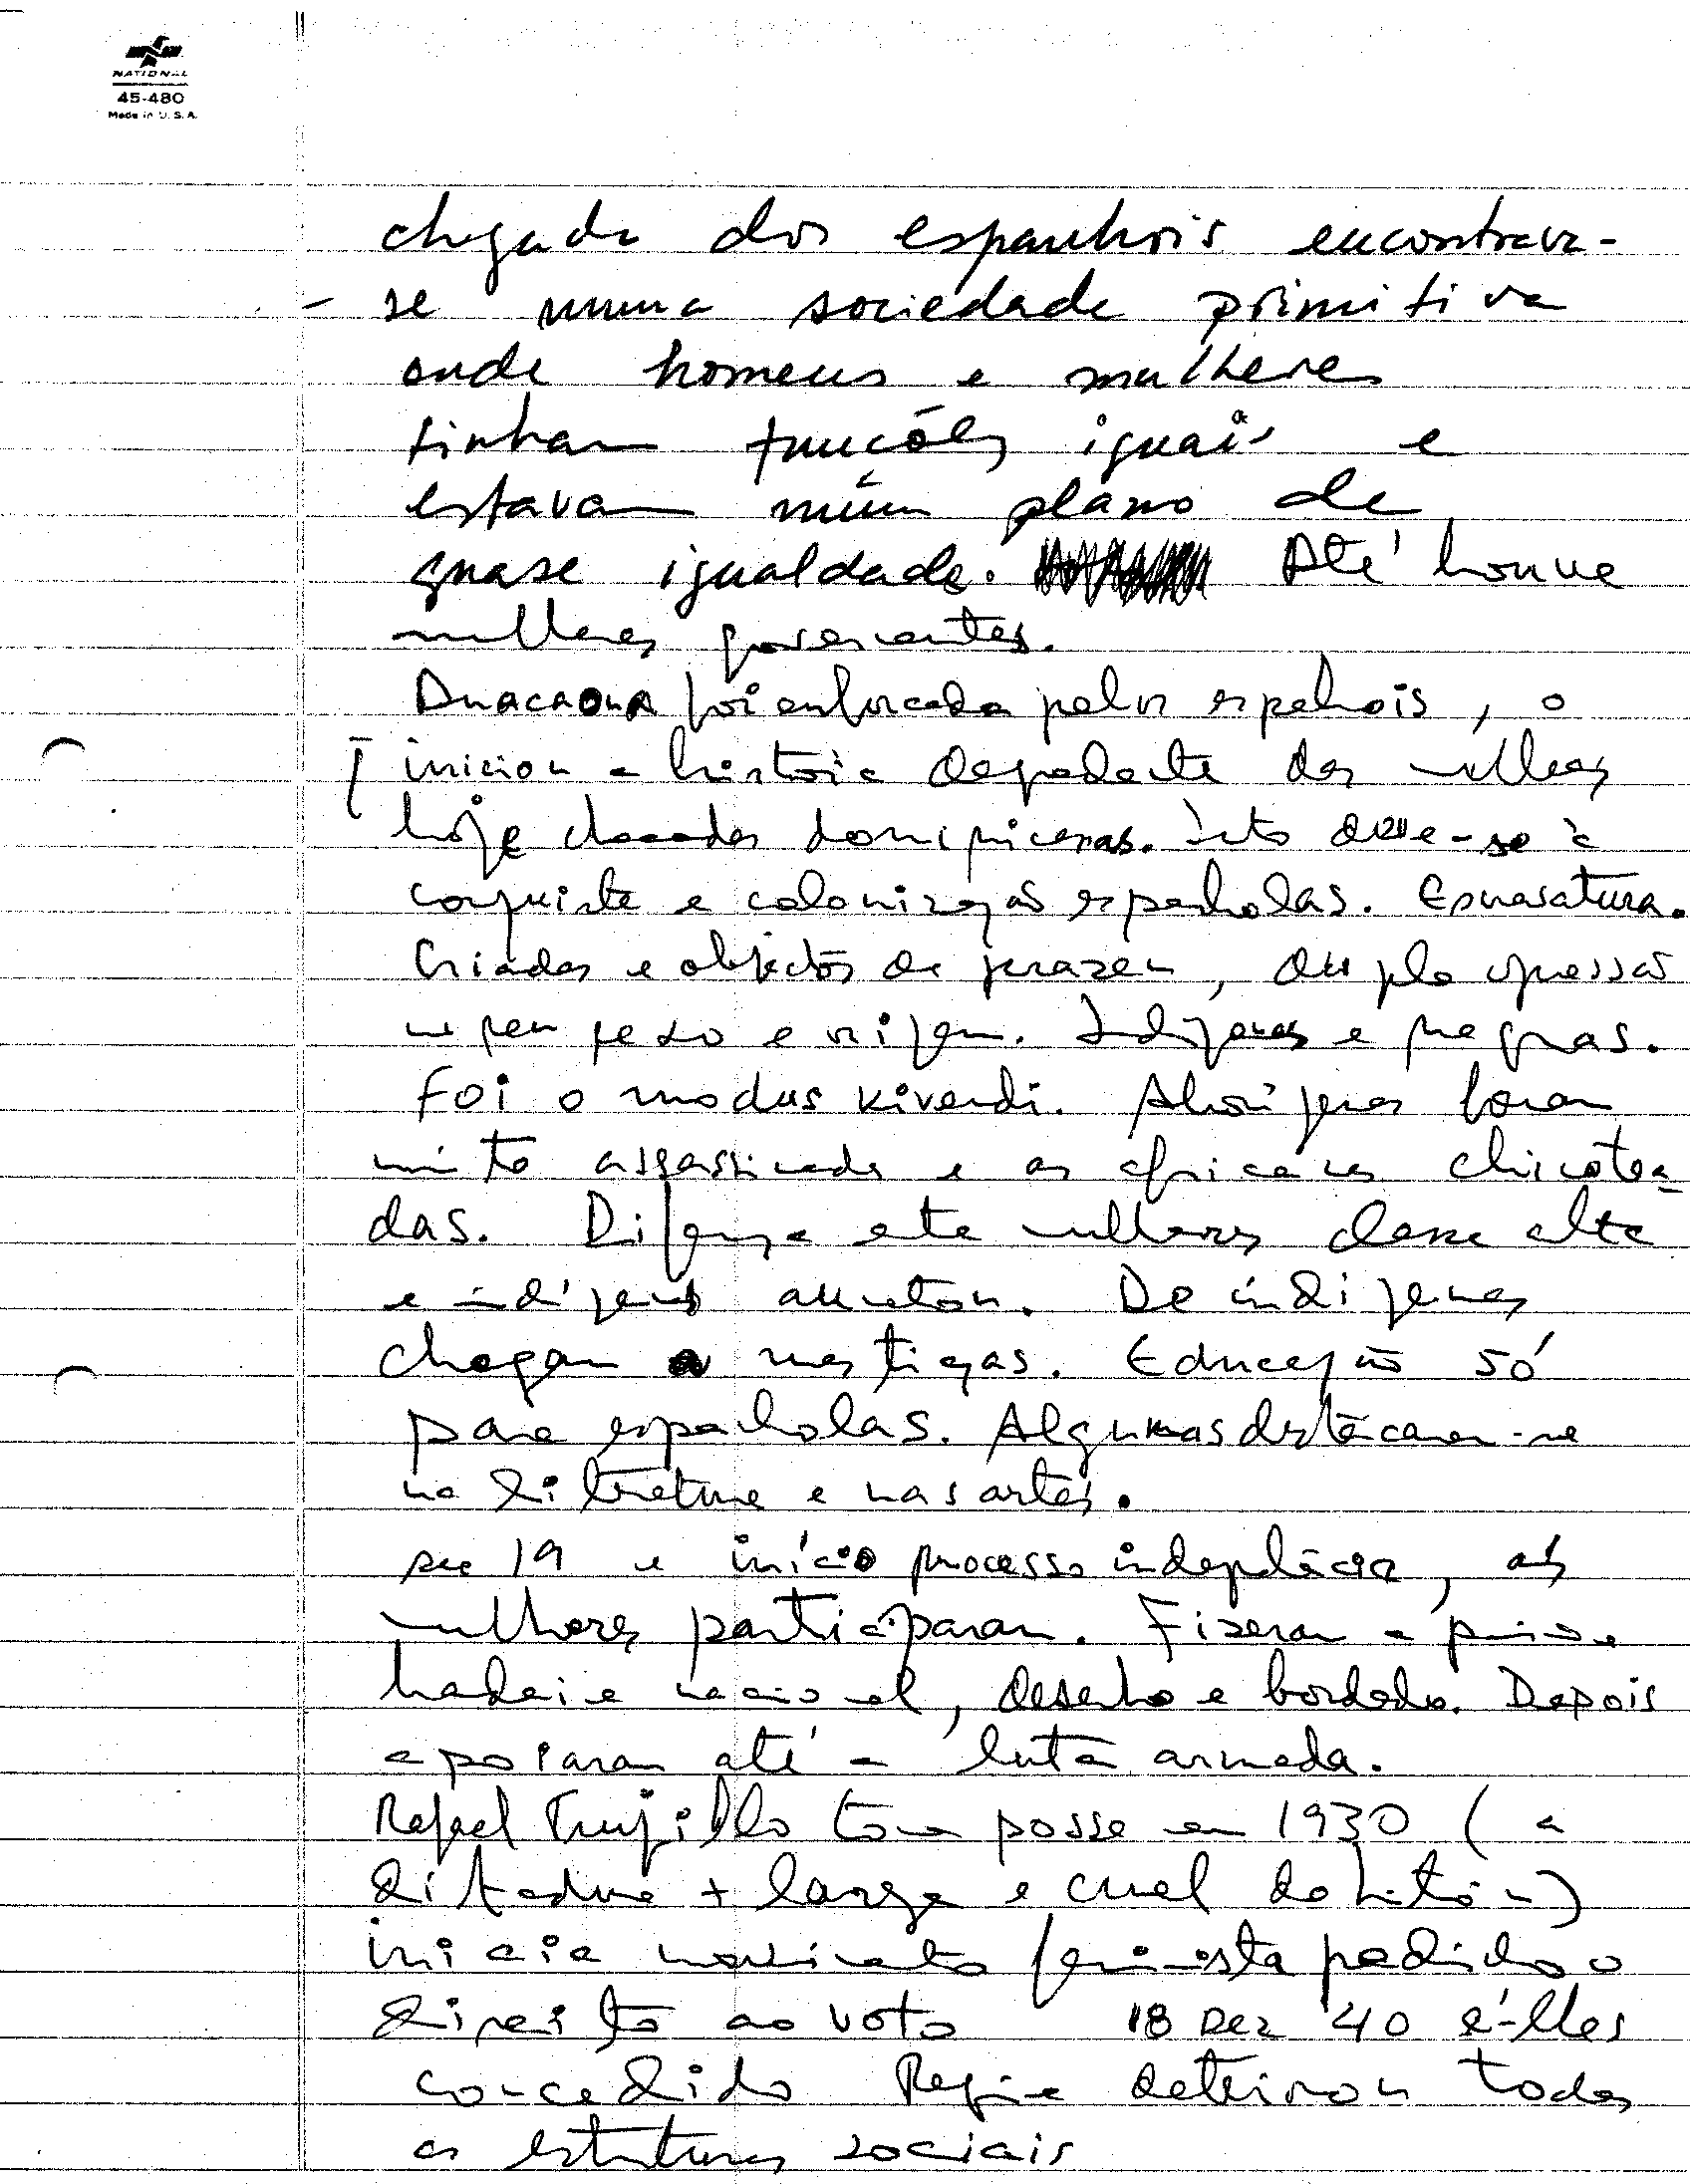 NATIONAL
45-480
Made in U.S.A.
chegada dos espanhois encontrava-
- se numa sociedade primitiva
onde homens e mulheres
tinham funções iguais e
estavam núm plano de
quase igualdade. Até houve
mulheres governantes.
Anacaona foi enforcada pelos espahois, o
iniciou a história degradante das mulheres
hoje chamadas dominicanas. Isto deve-se à
conquista e colonização espanholas. Escravatura.
Criadas e objectos de prazer, dupla opressão
seu sexo e origem. Indígenas e negras.
Foi o modus vivendi. Aborígenes foram
muito assassinadas e as africanas chicotea-
das. Diferença ete mulheres classe alta
e indígenas aumentou. De indígenas
chegam a mestiças. Educação só
para espanholas. Algumas destacaram-se
na literatura e nas artes.
sec 19 e início processo indepdêcia, as
mulheres participaram. Fizeram a primeira
badeira nacional, desenho e bordado. Depois
apoiaram até a luta armada.
Rafael Trujillo toma posse em 1930 (a
ditadura + larga e cruel da história)
inicia movimento feminista pedindo o
direito ao voto 18 Dez 40 é-lhes
concedido Regime deteriorou todas
as estruturas sociais